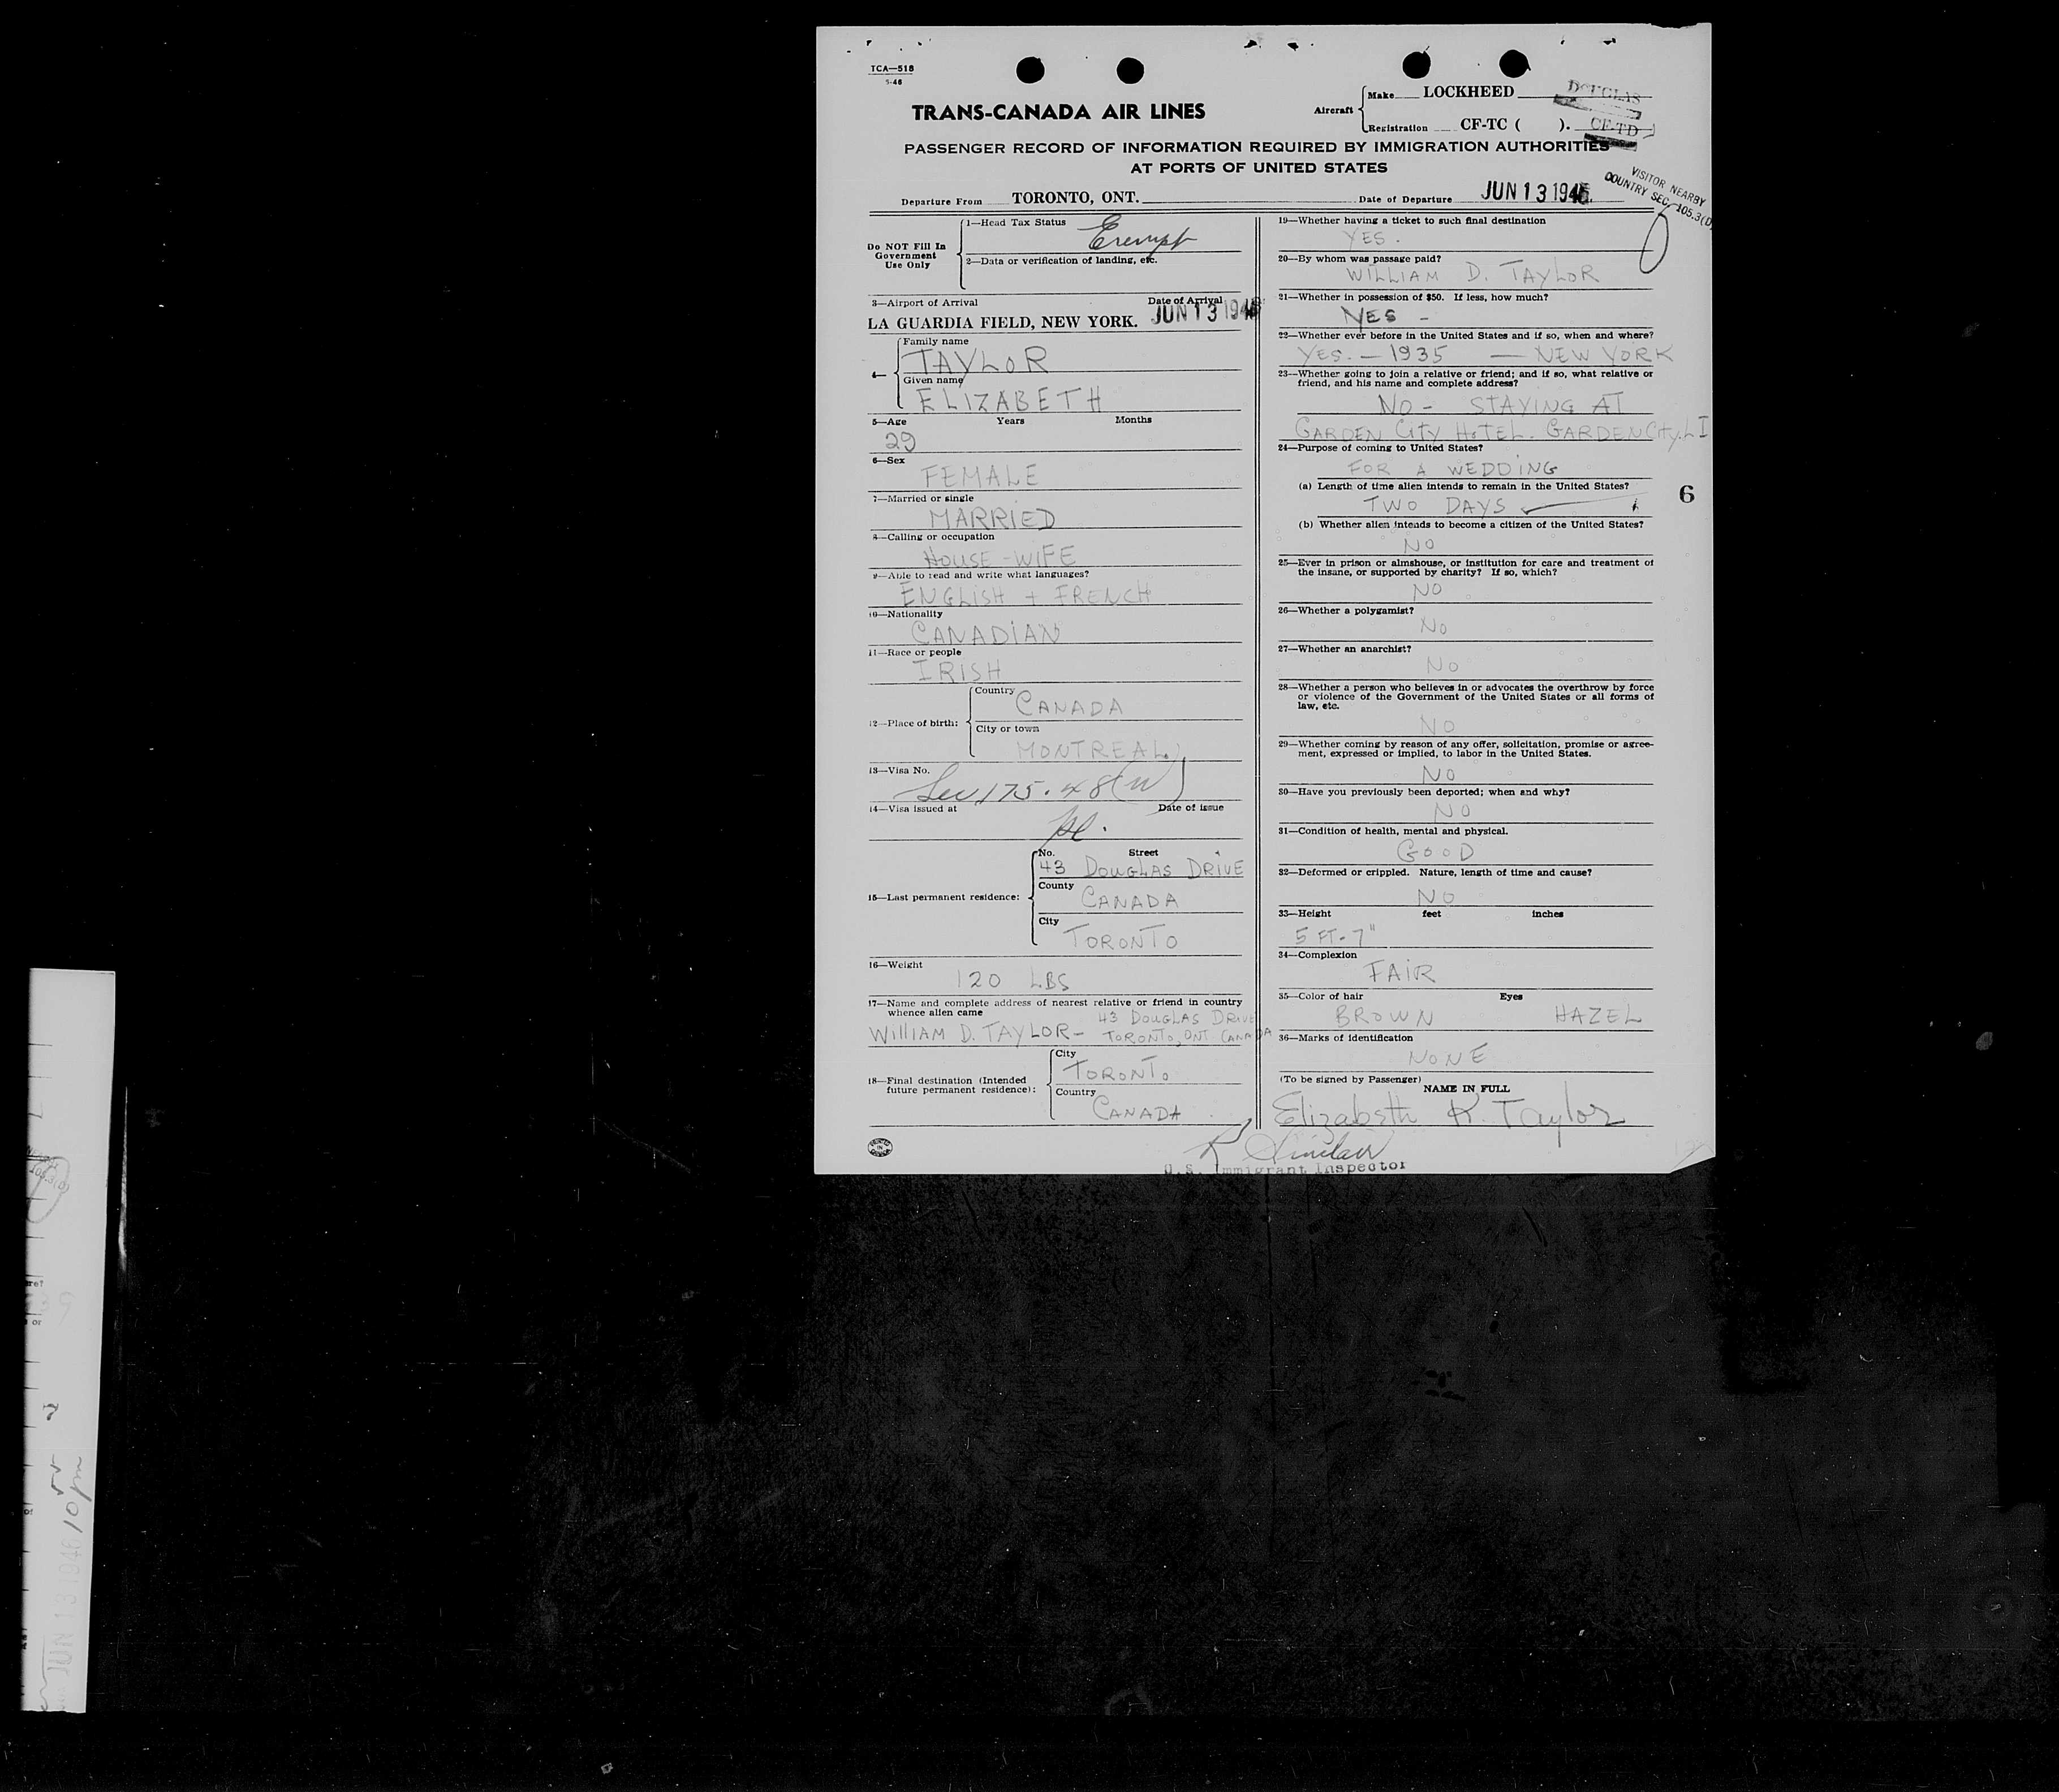 TCA—518
5-46
TRANS-CANADA AIR LINES
Aircraft
Make LOCKHEED DOUGLAS
Registration CF-TC ( ). CF-TD
PASSENGER RECORD OF INFORMATION REQUIRED BY IMMIGRATION AUTHORITIES
AT PORTS OF UNITED STATES
VISITOR NEARBY
COUNTRY SEC. 105.3(D)
Departure From TORONTO, ONT. Date of Departure JUN 13 1946
Do NOT Fill In
Government
Use Only
1—Head Tax Status Exempt
2—Data or verification of landing, etc.
3—Airport of Arrival Date of Arrival
LA GUARDIA FIELD, NEW YORK. JUN 13 1946
4—
Family name
TAYLOR
Given name
ELIZABETH
5—Age Years Months
29
6—Sex
FEMALE
7—Married or single
MARRIED
8—Calling or occupation
HOUSE-WIFE
9—Able to read and write what languages?
ENGLISH + FRENCH
10—Nationality
CANADIAN
11—Race or people
IRISH
12—Place of birth:
Country
CANADA
City or town
MONTREAL
13—Visa No.
Sec 175.48(W)
14—Visa issued at Date of issue
15—Last permanent residence:
No. Street
43 DOUGLAS DRIVE
County
CANADA
City
TORONTO
16—Weight
120 LBS
17—Name and complete address of nearest relative or friend in country
whence alien came 43 DOUGLAS DRIVE
WILLIAM D. TAYLOR- TORONTO, ONT CANADA
18—Final destination (Intended
future permanent residence):
City
TORONTO
Country
CANADA
19—Whether having a ticket to such final destination
YES.
20—By whom was passage paid?
WILLIAM D. TAYLOR
21—Whether in possession of $50. If less, how much?
YES -
22—Whether ever before in the United States and if so, when and where?
YES. — 1935 — NEW YORK
23—Whether going to join a relative or friend; and if so, what relative or
friend, and his name and complete address?
NO - STAYING AT
GARDEN CITY HOTEL. GARDEN CITY. L I
24—Purpose of coming to United States?
FOR A WEDDING
(a) Length of time alien intends to remain in the United States?
TWO DAYS
6
(b) Whether alien intends to become a citizen of the United States?
NO
25—Ever in prison or almshouse, or institution for care and treatment of
the insane, or supported by charity? If so, which?
NO
26—Whether a polygamist?
NO
27—Whether an anarchist?
NO
28—Whether a person who believes in or advocates the overthrow by force
or violence of the Government of the United States or all forms of
law, etc.
NO
29—Whether coming by reason of any offer, solicitation, promise or agree-
ment, expressed or implied, to labor in the United States.
NO
30—Have you previously been deported; when and why?
NO
31—Condition of health, mental and physical.
GOOD
32—Deformed or crippled. Nature, length of time and cause?
NO
33—Height feet inches
5 FT-7"
34—Complexion
FAIR
35—Color of hair Eyes
BROWN HAZEL
36—Marks of identification
NONE
(To be signed by Passenger) NAME IN FULL
Elizabeth K. Taylor
PRINTED IN CANADA
R Sinclair
U.S. Immigrant Inspector
105.3(D)
re?
or
JUN 13 1946 10 pm